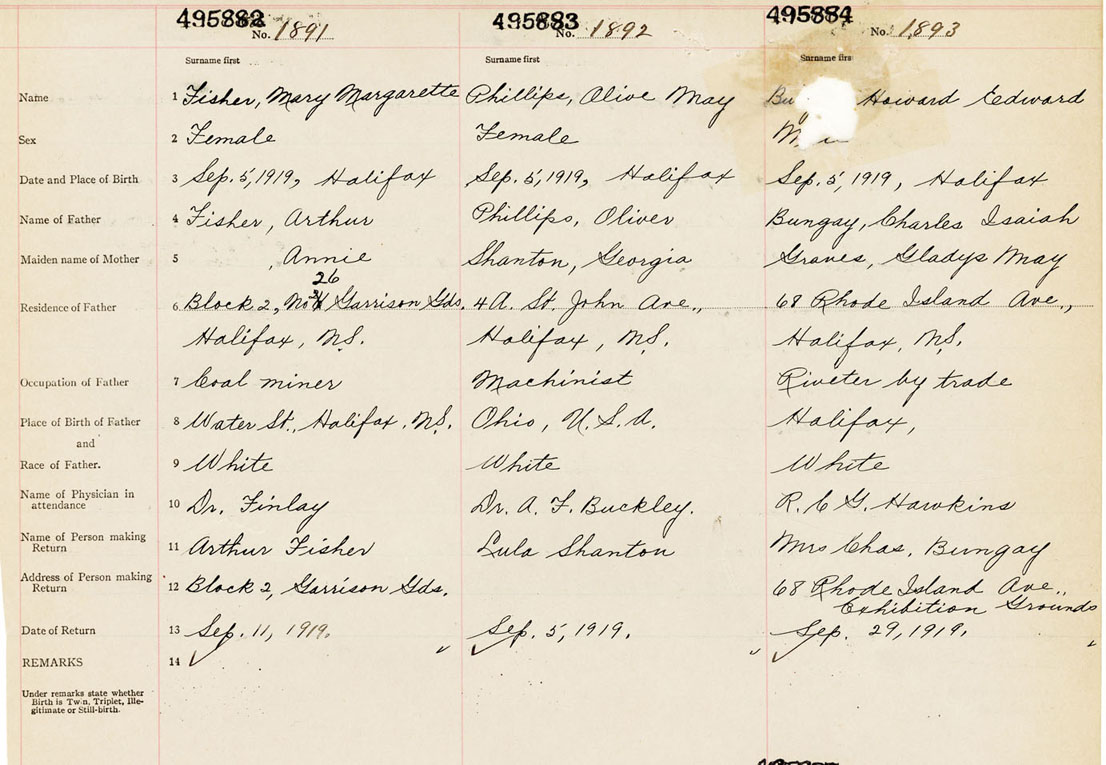 495882 495883 495884
No. 1891 No. 1892 No. 1893
Surname first Surname first Surname firs
Name 1 Fisher, Mary Margarette Phillips, Olive May Bu Howard Eedward
Sex 2 Female Female
Date and Place of Birth 3 Sep. 5, 1919, Halifax Sep. 5, 1919, Halifax Sep. 5, 1919, Halifax
Name of Father 4 Fisher, Arthur Phillips, Oliver Bungay, Charles Isaiah
Maiden name of Mother 5 , Annie Shanton, Georgia Graves, Gladys May
26
Residence of Father 6 Block 2, No Garrison Gds. 4 A. St. John Ave., 68 Rhode Island Ave.,
Halifax, N.S. Halifax, N.S. Halifax, N.S.
Occupation of Father 7 Coal miner Machinist Riveter by trade
Place of Birth of Father 8 Water St., Halifax, N.S. Ohio, U.S.A. Halifax,
and
Race of Father. 9 White White White
Name of Physician in
attendance 10 Dr. Finlay Dr. A. F. Buckley. R. C G. Hawkins
Name of Person making
Return 11 Arthur Fisher Lula Shanton Mrs Chas. Bungay
Address of Person making
Return 12 Block 2, Garrison Gds. 68 Rhode Island Ave.,
Exhibition Grounds
Date of Return 13 Sep. 11, 1919. Sep. 5, 1919. Sep. 29, 1919.
REMARKS 14
Under remarks state whether
Birth is Twin, Triplet, Ille-
gitimate or Still-birth.